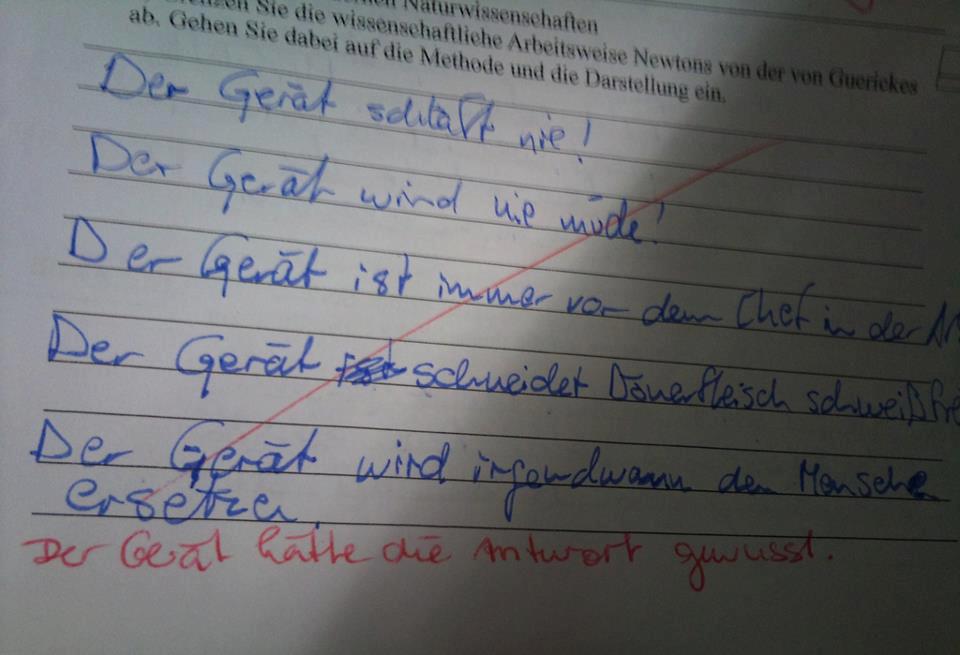 Sie die wissenschaftliche Arbeitsweise Newtons von der von Guerickes
ab. Gehen Sie dabei auf die Methode und die Darstellung ein.
Der Gerät schläft nie!
Der Gerät wird nie müde!
Der Gerät ist immer vor dem Chef in der
Der Gerät schneidet Dönerfleisch schweißfre
Der Gerät wird irgendwann den Mensche
ersetzen.
Der Gerät hätte die Antwort gewusst.